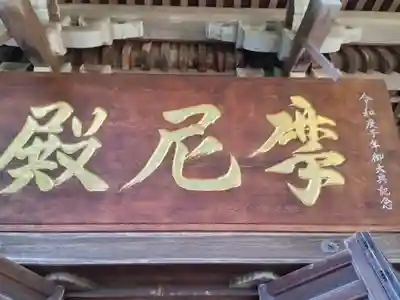 令和庚子年御大典記念
摩尼殿